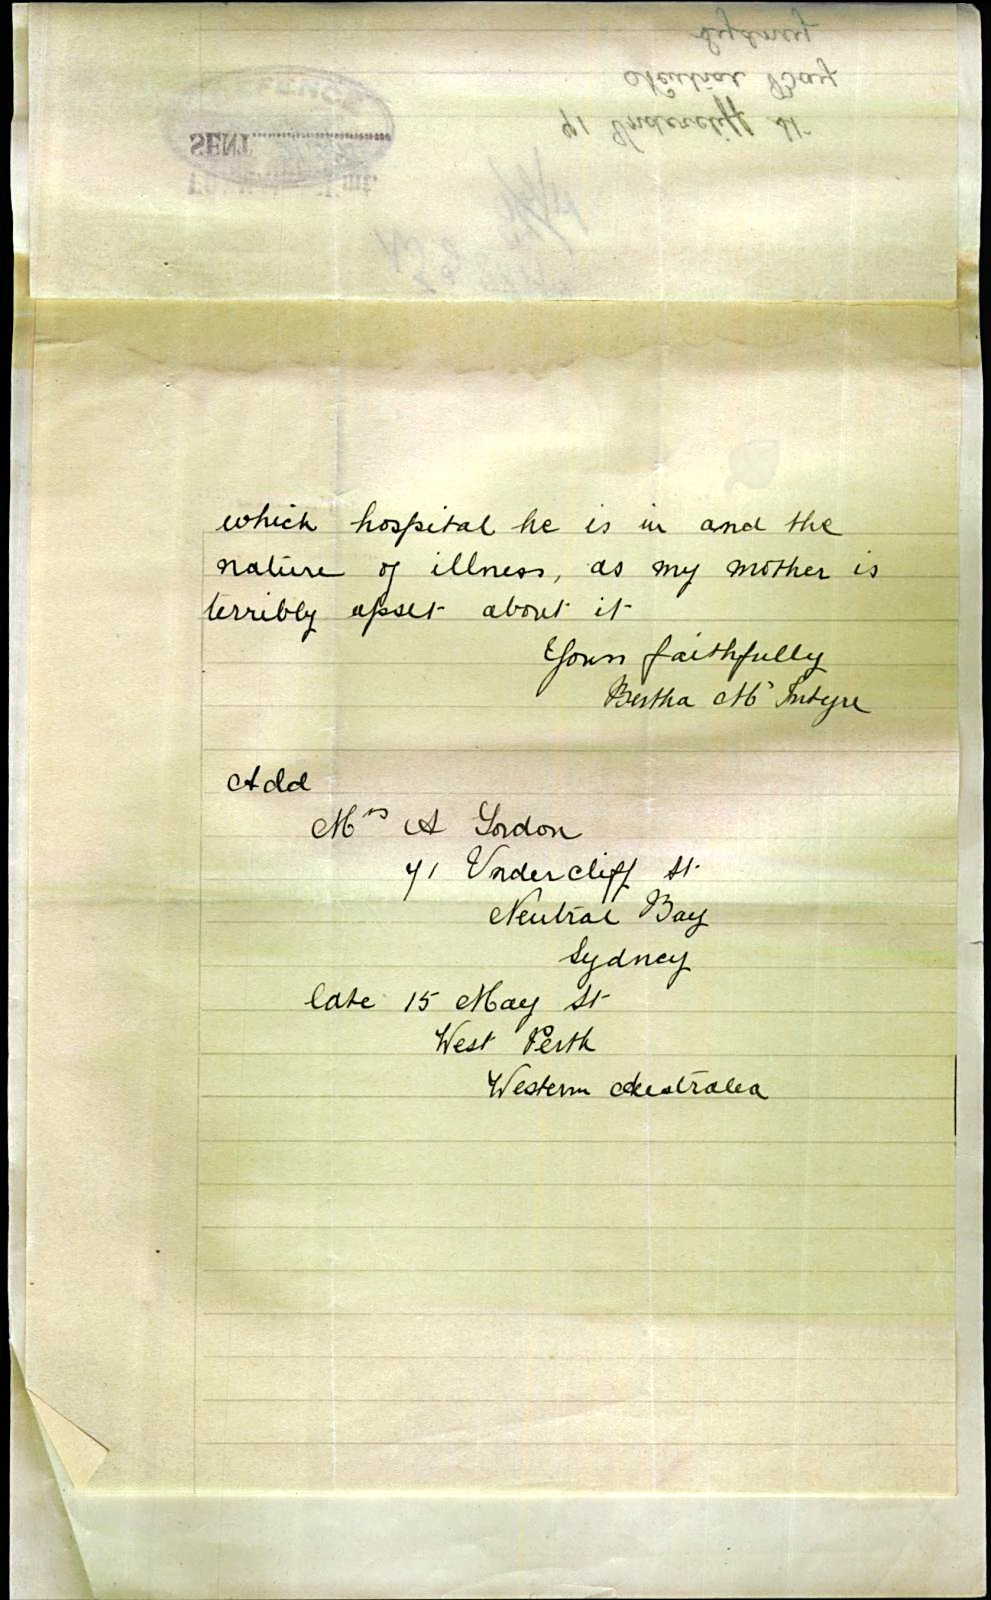 Sydney
Neutral Bay
71 Undercliff St
SENT
which hospital he is in and the
nature of illness, as my mother is
terribly upset about it
Yours faithfully
Bertha McIntyre
Add
Mrs A Gordon
71 Undercliff St
Neutral Bay
Sydney
late 15 May St
West Perth
Western Australia